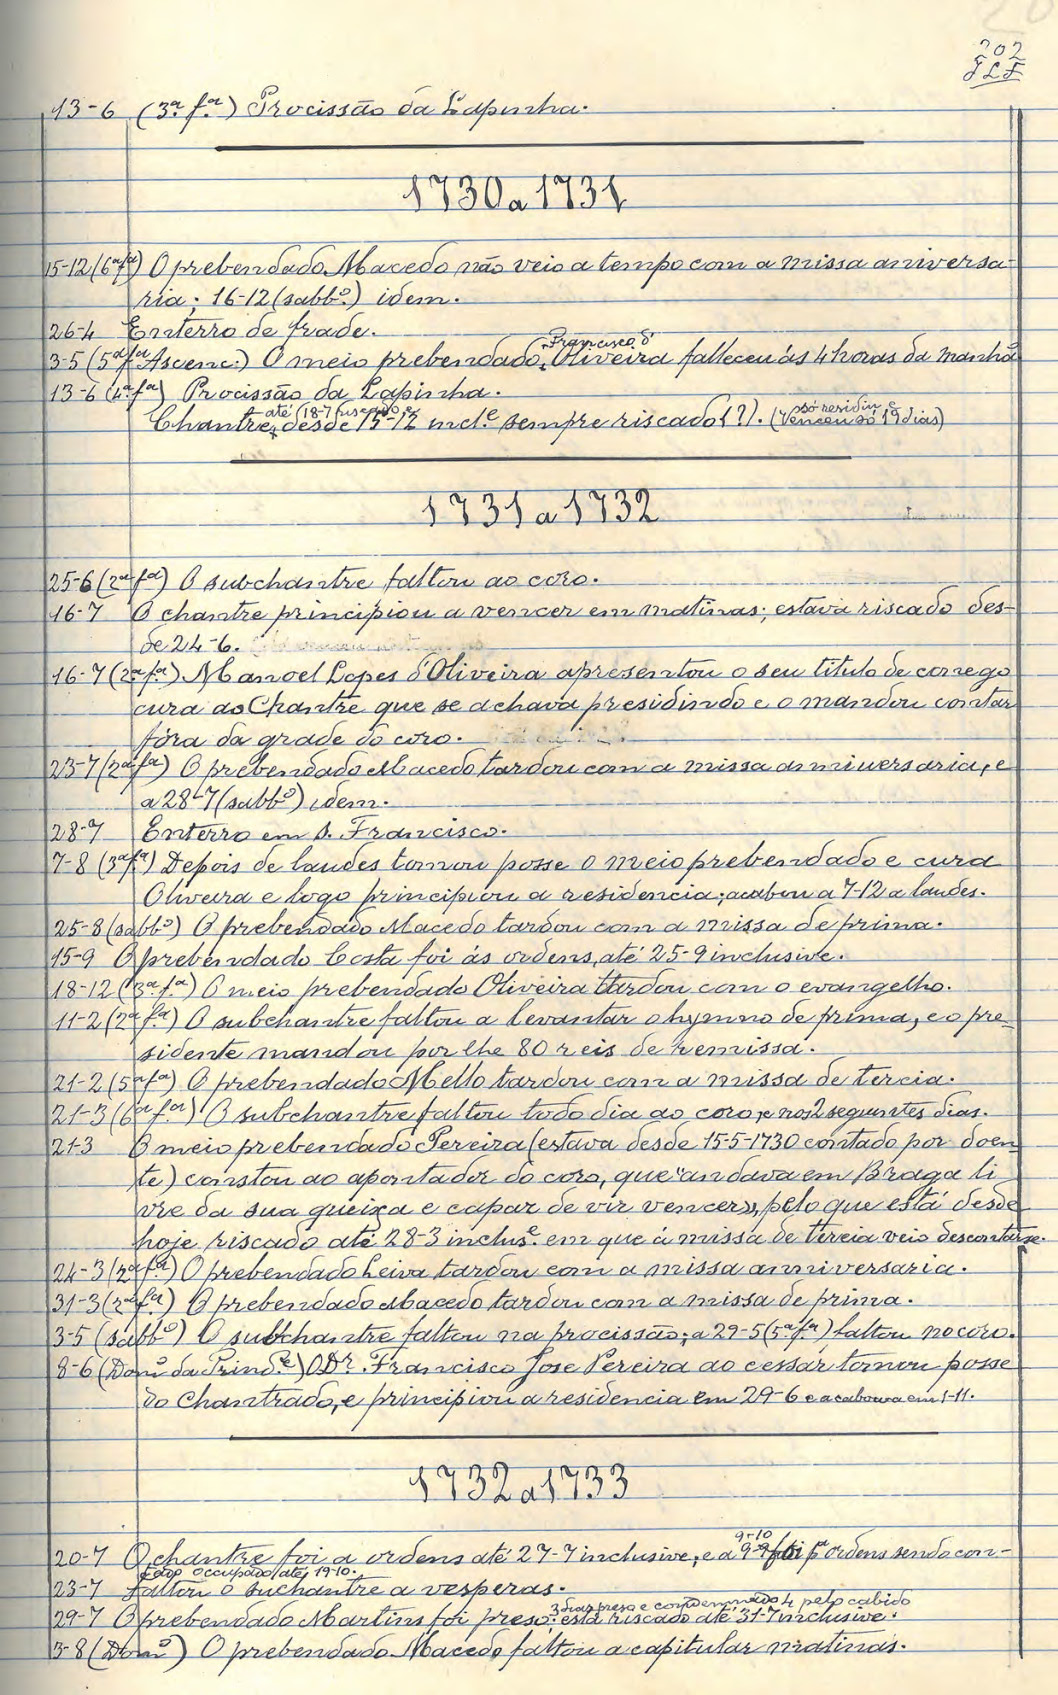 202
13-6 (3ª fª) Procissão da Lapinha.
1730 a 1731
15-12 (6ª fª) O prebendado Macedo não veio a tempo com a missa aniversa-
ria; 16-12 (sabbº.) idem.
26-4 Enterro de frade.
3-5 (5ª fª Ascenc.) O meio prebendado, Francisco d' Oliveira falleceu ás 4 horas da manhã
13-6 (4ª fª) Procissão da Lapinha.
Chantre, até 18-7 desde 15-12 incl.e sempre riscado (?). (só residiu e venceu só 19 dias)
1731 a 1732
25-6 (2ª fª) O subchantre faltou ao coro.
16-7 O chantre principiou a vencer em matinas; estava riscado des-
de 24-6.
16-7 (2ª fª) Manoel Lopes d'Oliveira apresentou o seu titulo de conego
cura ao Chantre que se achava presidindo e o mandou contar
fóra da grade do coro.
23-7 (2ª fª) O prebendado Macedo tardou com a missa anniversaria, e
a 28-7 (sabbº) idem.
28-7 Enterro em S. Francisco.
7-8 (3ª fª) Depois de laudes tomou posse o meio prebendado e cura
Oliveira e logo principiou a residencia; acabou a 7-12 a laudes.
25-8 (sabbº) O prebendado Macedo tardou com a missa de prima.
15-9 O prebendado Costa foi ás ordens, até 25-9 inclusive.
18-12 (3ª fª) O meio prebendado Oliveira tardou com o evangelho.
11-2 (2ª fª) O subchantre faltou a levantar o hymno de prima, e o pre-
sidente mandou por lhe 80 reis de remissa.
21-2 (5ª fª) O prebendado Mello tardou com a missa de tercia.
21-3 (6ª fª) O subchantre faltou todo dia ao coro, e nos 2 seguintes dias.
21-3 O meio prebendado Pereira (estava desde 15-5-1730 contado por doen-
te) constou ao apontador do coro, que "andava em Braga li
vre da sua queixa e capaz de vir vencer», pelo que está desde
hoje riscado até 28-3 inclus.e em que á missa de tercia veio descontar-se.
24-3 (2ª fª) O prebendado Leiva tardou com a missa anniversaria.
31-3 (2ª fª) O prebendado Macedo tardou com a missa de prima.
3-5 (sabbº) O subchantre faltou na procissão; a 29-5 (5ª fª) faltou no coro.
8-6 (Domº da Trind.e) O Dr. Francisco José Pereira ao cessar tomou posse
do Chantrado, e principiou a residencia em 29-6 e acabou a em 1-11.
1732 a 1733
20-7 O chantre foi a ordens até 27-7 inclusive, e a 9-10 foi pª ordens sendo con-
tado occupado até 19-10.
23-7 Faltou o suchantre a vesperas.
29-7 O prebendado Martins foi preso; 3 dias preso e condemnado 4 pelo cabido está riscado até 31-7 inclusive.
3-8 (Domº) O prebendado Macedo faltou a capitular matinas.